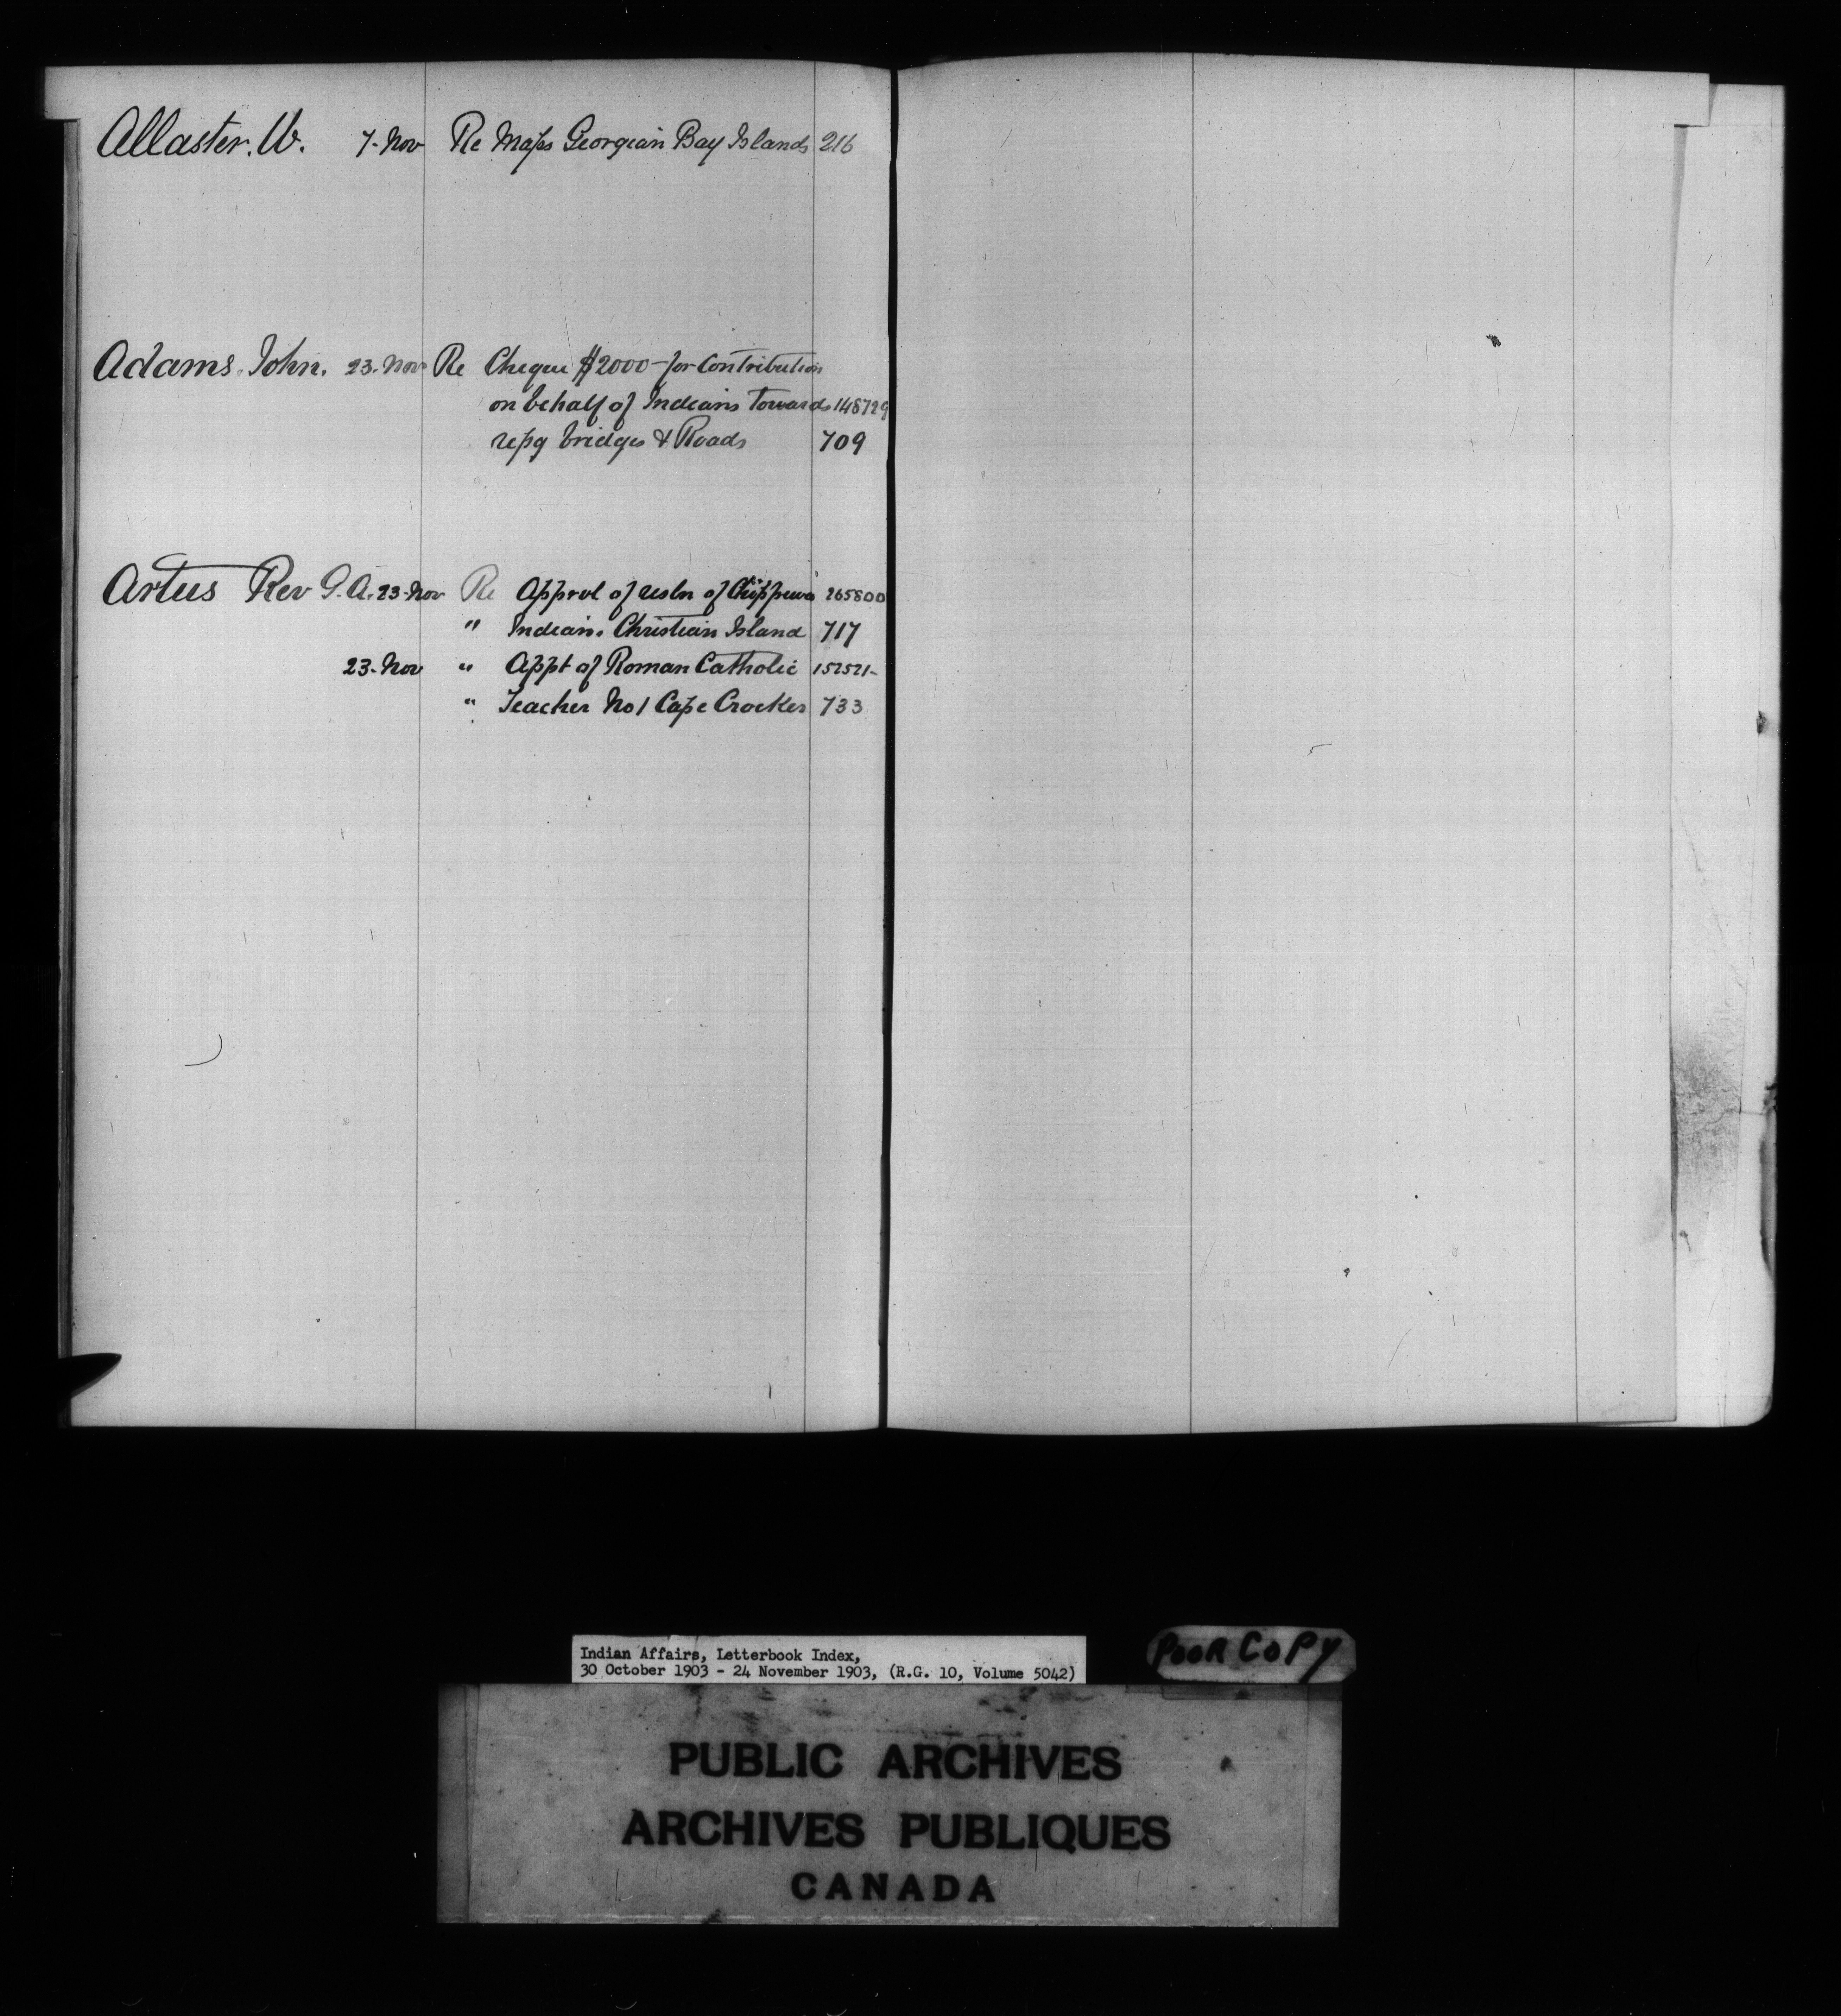 Allaster. W. 7-Nov Re Maps Georgian Bay Islands 216
Adams. John. 23-Nov Re Cheque $2000- for Contribution
on behalf of Indians Towards 148729
repg bridges & Roads 709
Artus Rev G. A. 23-Nov Re Apprvl of resln of Chippewa 265800
" Indians Christian Island 717
23-Nov " Appt of Roman Catholic 152521-
" Teacher No 1 Cape Crocker 733
Indian Affairs, Letterbook Index,
30 October 1903 - 24 November 1903, (R.G. 10, Volume 5042)
POOR COPY
PUBLIC ARCHIVES
ARCHIVES PUBLIQUES
CANADA